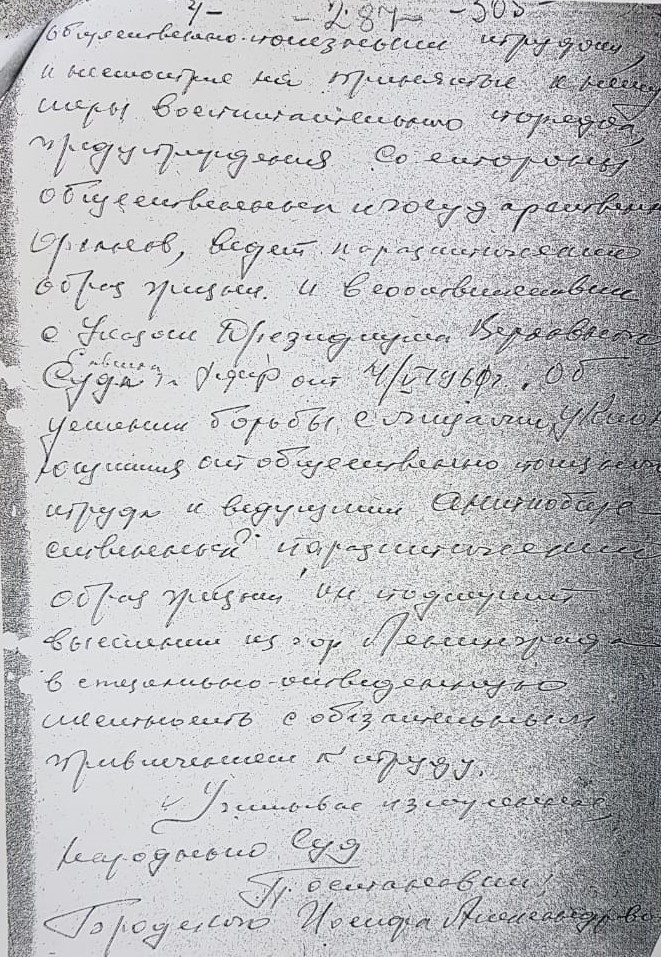 - 287 - - 305 -
общественно-полезным трудом,
и несмотря на принятые к нему
меры воспитательного порядка,
предупреждения со стороны
общественных и государствен
органов, ведет паразитический
образ жизни. И в соответствии
с Указом Президиума Верховного
Совета РСФСР от 4/V 1961г. "Об
усилении борьбы с лицами, укло
няющимися от общественно полезного
труда и ведущими антиобще-
ственный паразитический
образ жизни" он подлежит
выселению из гор Ленинграда
в специально-отведенную
местность с обязательным
привлечением к труду.
Учитывая изложенное,
народный Суд
Постановил:
Бродского Иосифа Александрово